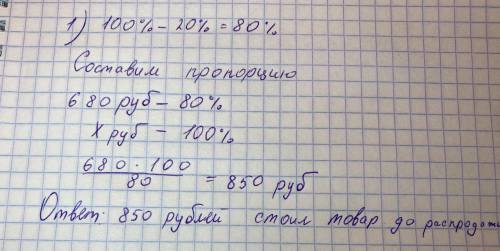 1) 100% - 20% = 80%
Составим пропорцию
680 руб - 80%
X руб - 100%
680 · 100
80
= 850 руб
Ответ: 850 рублей стоил товар до распродажи